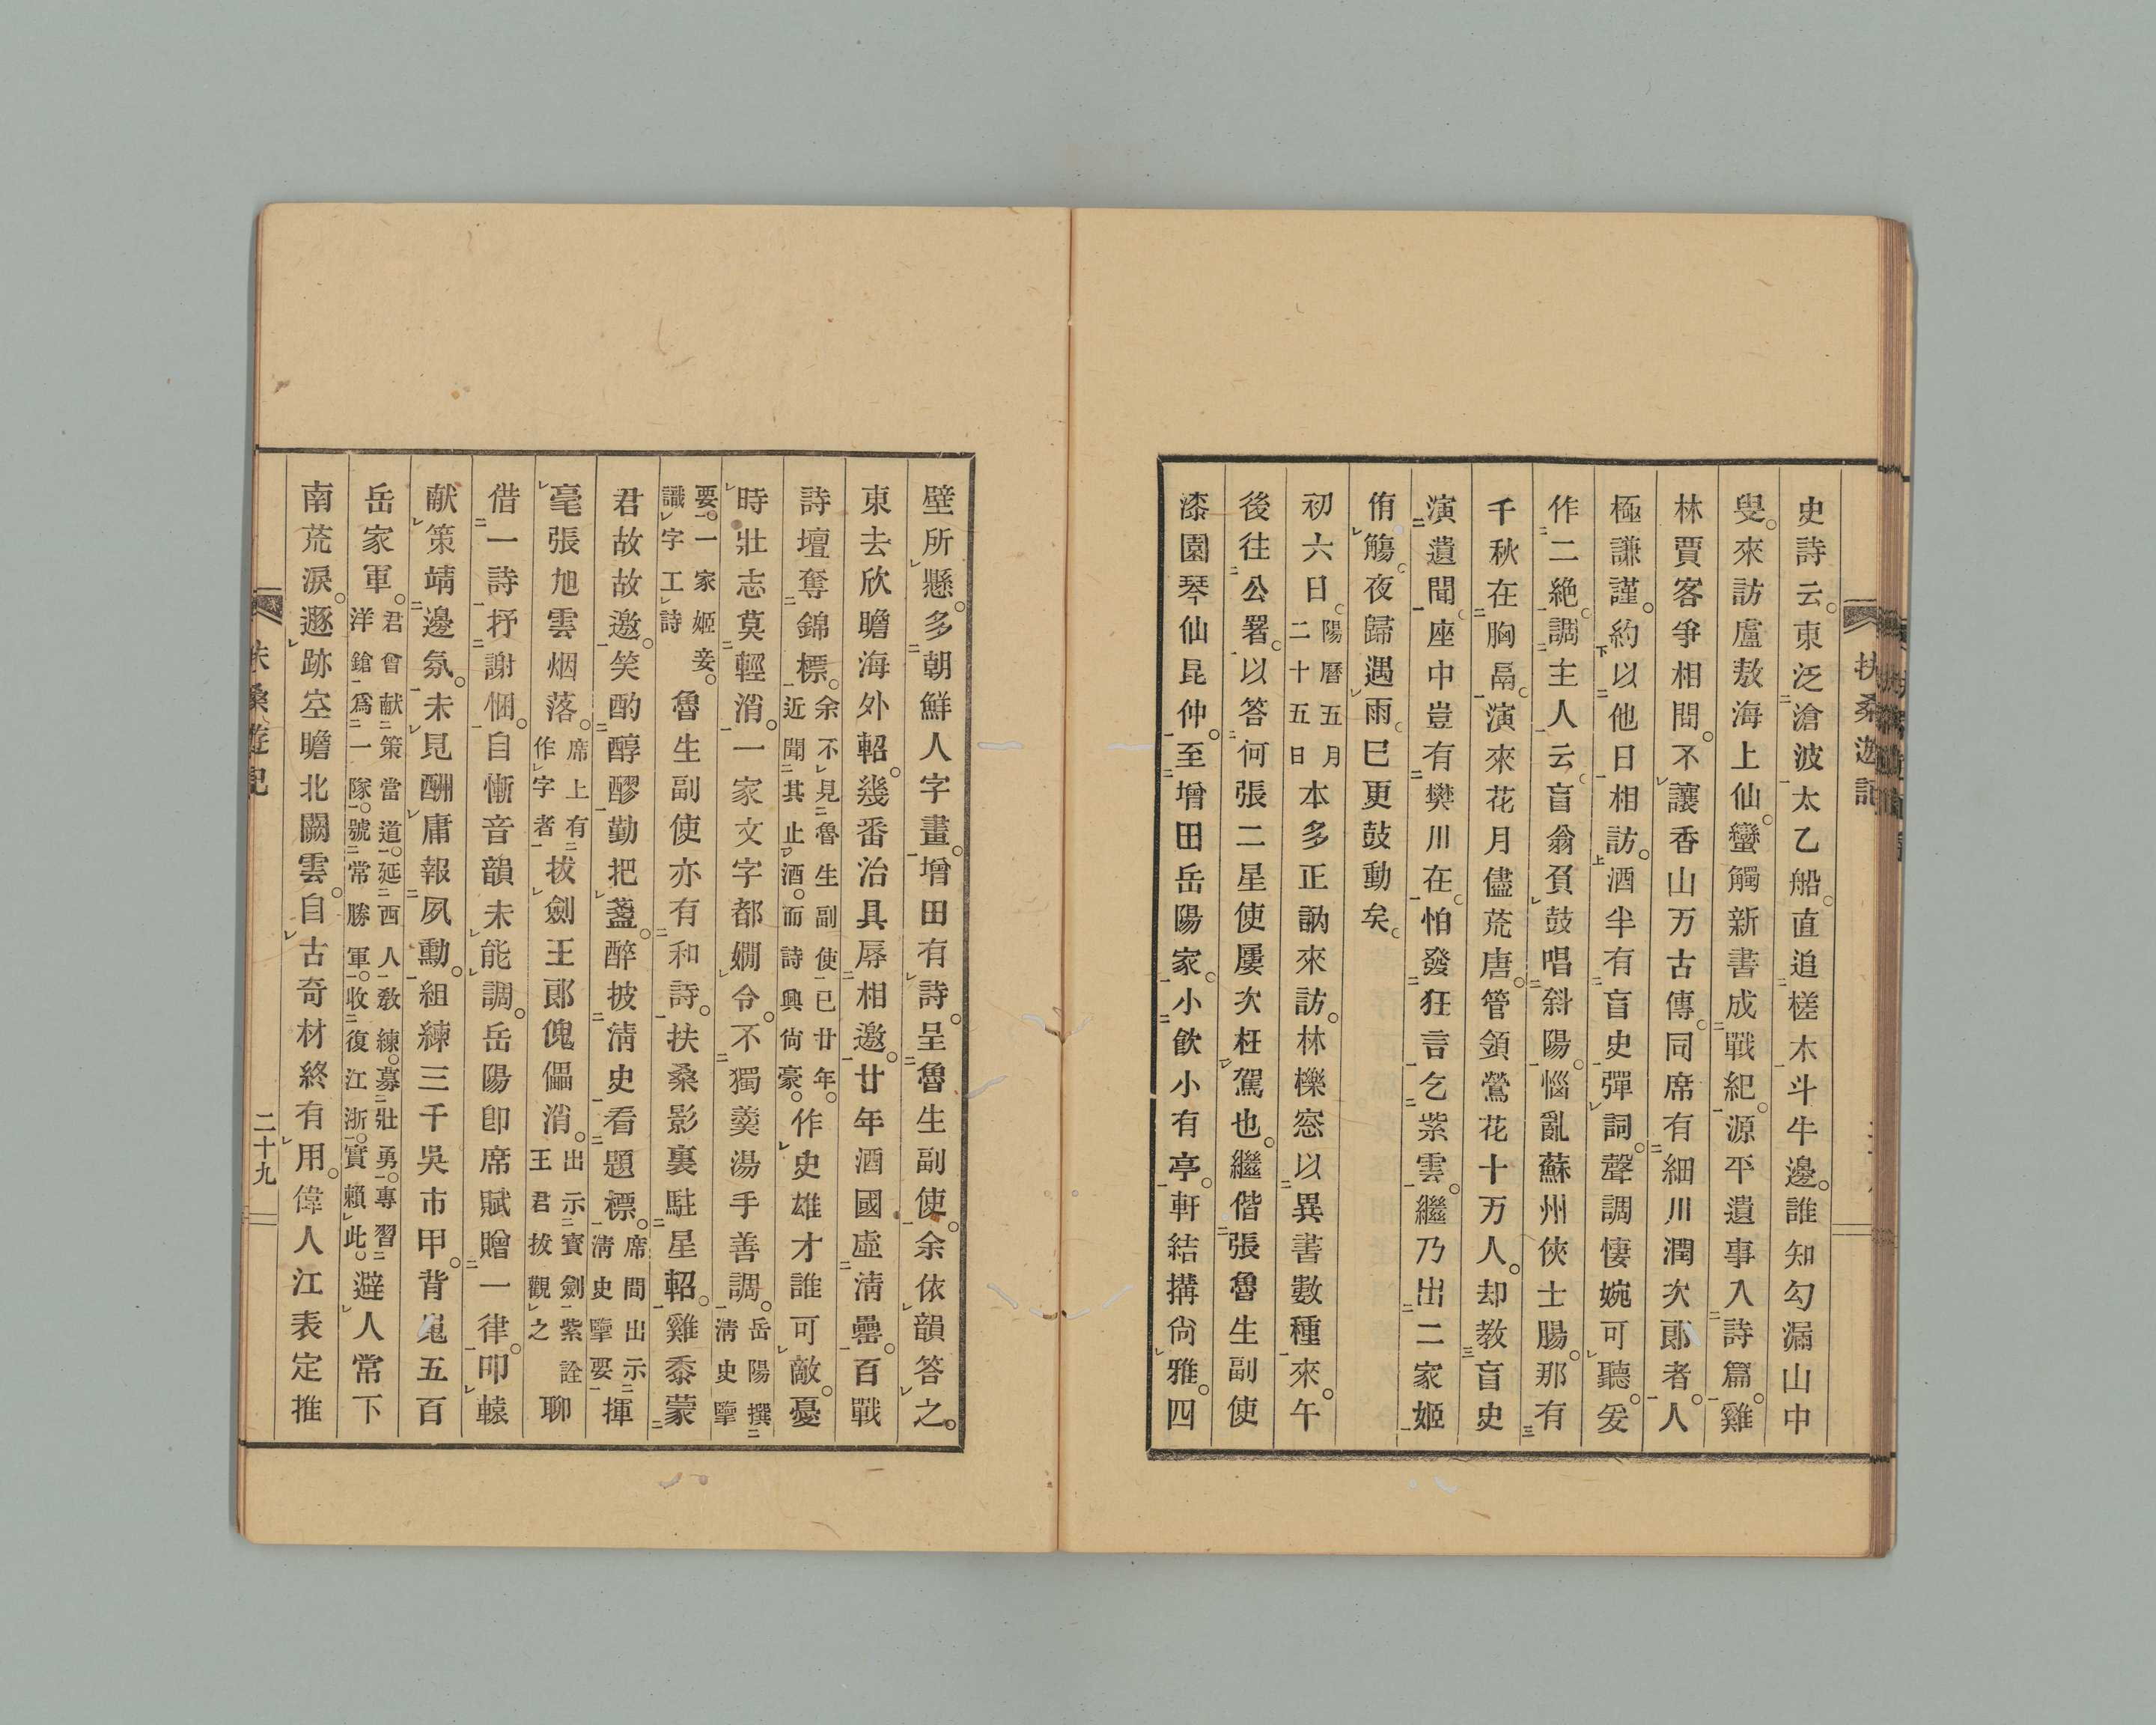 扶桑遊記
史詩云。東泛滄波太乙船。直追槎木斗牛邊。誰知勾漏山中
叟。來訪盧敖海上仙。蠻觸新書成戰紀。源平遺事入詩篇。雞
林賈客爭相問。不讓香山万古傳。同席有細川潤次郎者。人
極謙謹。約以他日相訪。酒半有盲史彈詞。聲調悽婉可聽。爰
作二絶。調主人云。盲翁負鼓唱斜陽。惱亂蘇州俠士腸。那有
千秋在胸鬲。演來花月儘荒唐。管領鶯花十万人。却教盲史
演遺聞。座中豈有樊川在。怕發狂言乞紫雲。繼乃出二家姬
侑觴。夜歸遇雨。巳更鼓動矣。
初六日。陽曆五月二十五日本多正訥來訪。林櫟窓以異書數種來。午
後往公署。以答何張二星使屢次枉駕也。繼偕張魯生副使
漆園琴仙昆仲。至增田岳陽家。小飲小有亭。軒結搆尙雅。四
壁所懸。多朝鮮人字畫。增田有詩。呈魯生副使。余依韻答之。
東去欣瞻海外軺。幾番治具辱相邀。廿年酒國虛淸罍。百戰
詩壇奪錦標。余不見魯生副使已廿年。近聞其止酒。而詩興尙豪。作史雄才誰可敵。憂
時壯志莫輕消。一家文字都嫺令。不獨羹湯手善調。岳陽撰淸史擥
要。一家姬妾。識字工詩魯生副使亦有和詩。扶桑影裏駐星軺。雞黍蒙
君故故邀。笑酌醇醪勤把盞。醉披淸史看題標。席間出示淸史擥要揮
毫張旭雲烟落。席上有作字者拔劍王郞傀儡消。出示寶劍紫詮王君拔觀之聊
借一詩抒謝悃。自慚音韻未能調。岳陽卽席賦贈一律。叩轅
献策靖邊氛。未見酬庸報夙勳。組練三千吳市甲。背嵬五百
岳家軍。君曾献策當道。延西人敎練。募壯勇。專習洋鎗。爲一隊。號常勝軍。收復江浙。實賴此。避人常下
南荒淚。遯跡空瞻北闕雲。自古奇材終有用。偉人江表定推
扶桑遊記
二十九